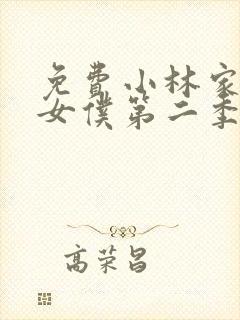 免费小林家
女僕第二季
高荣昌